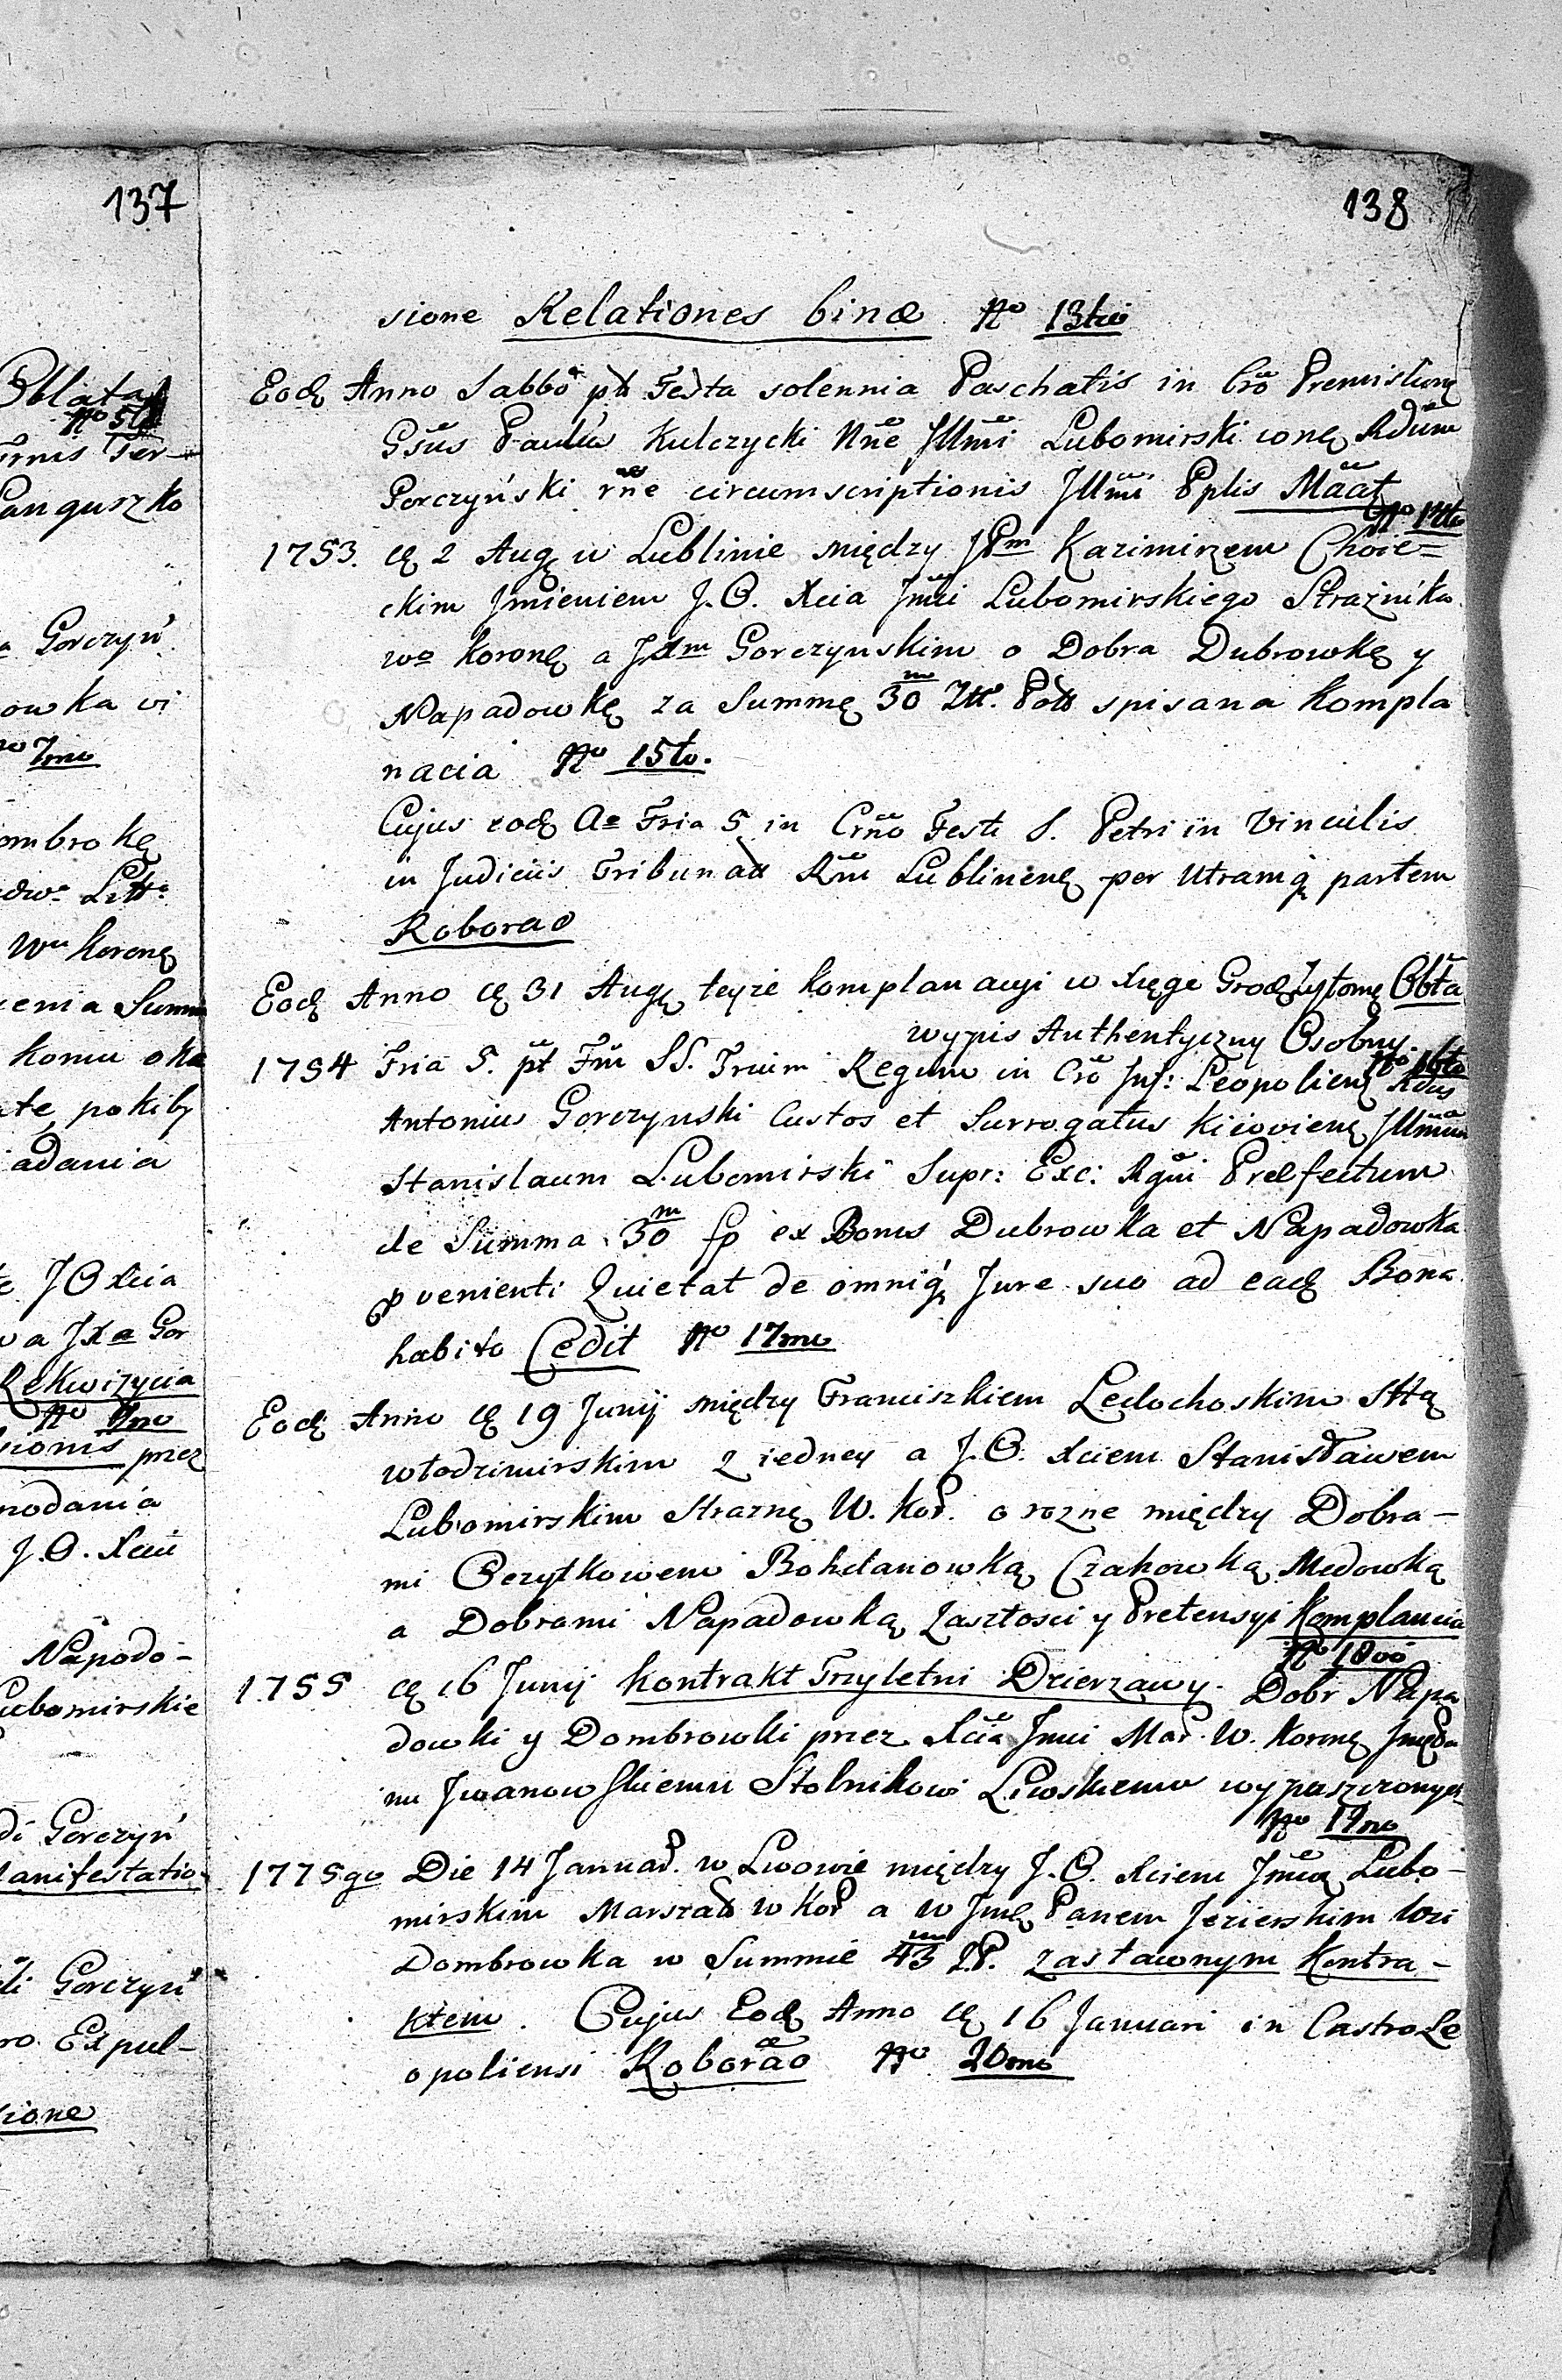 137
Oblata
No 5to
Trnis Ter-
Sanguszko
a Gorczyń
owka vi
no 7mo
ombrokę
Litt:
Wu koronę
zenia Summ
komu oka
ate pokiby
adania
JO Xcia
wa JXa Gor
Rekwizycia
No 9no
sionis przez
nodania
J.O. Xcia
Napodo-
Lubomirskie
di Gorczyń
Manifestatio
di Gorczyń
ro Expul-
sione
138
sione Relationes binæ No 13tio
Eodę Anno Sabbo pt Festa solennia Paschatis in Cro Premislienę
Gsus Paulus Kulczycki Nne Illmi Lubomirski conę Rdum
Gorczyński rne circumscriptionis Illmi Eplis Maat
No 14to
1753. dę 2 Augę w Lublinie między JPm Kazimirzem Choie=
ckim Jmieniem J.O. Xcia Jmci Lubomirskiego Strażnika
wo koronę a JXm Gorczynskim o Dobra Dubrowkę y
Napadowkę za Summę 30m Złł. Poll spisana Kompla
nacia No 15to.
Cujus eodę Ao Fria 5 in Crno Festi S. Petri in Vinculis
in Judiciis Tribunall Rni Lublinenę per Utramq partem
Roborao
Eodę Anno dę 31 Augę teyże komplanacyi w Xięgę Grodę Zytomę Obta
wypis Authentyczny Osobny.
No 16to
1754 Fria 5. pt Fm SS. Trium Regum in Cro Inf: Leopolienę Rdus
Antonius Gorczynski Custos et Surrogatus Kiiovienę Illmum
Stanislaum Lubomirski Supr: Exc: Rgni Præfectum
de Summa 30m fp ex Bonis Dubrowka et Napadowka
pvenienti Quietat de omniq Jure suo ad eadę Bona
habito Cedit No 17mo
Eodę Anno dę 19 Junij między Franciszkiem Lędochoskim Sttą
włodzimirskim z iedney a J.O. Xciem Stanisławem
Lubomirskim Strażnę W. Kor. o rozne między Dobra-
mi Beżytkowem Bohdanowką Czahowką Medowką
a Dobrami Napadowką Zaszłości y Pretensyi Komplancia
No 18vo
1755 dę 16 Junij Kontrakt Trzyletni Dzierzawy. Dobr Napa
dowki y Dombrowki przez Xcia Jmci Mar. W. Koronę JmęPa
nu Jwanowskiemu Stolnikowi Liwskiemu wypuszczonych
No 19no
1775go Die 14 Januar. w Lwowie między J.O. Xciem Jmcią Lubo-
mirskim Marszall W Kor a W Jmę Panem Jezierskim Wsi
Dombrowka w Summie 43m Z.P. zastawnym Kontra-
ktem. Cujus Eodę Anno dę 16 Januari in Castro Le
opoliensi Roborao No 20mo